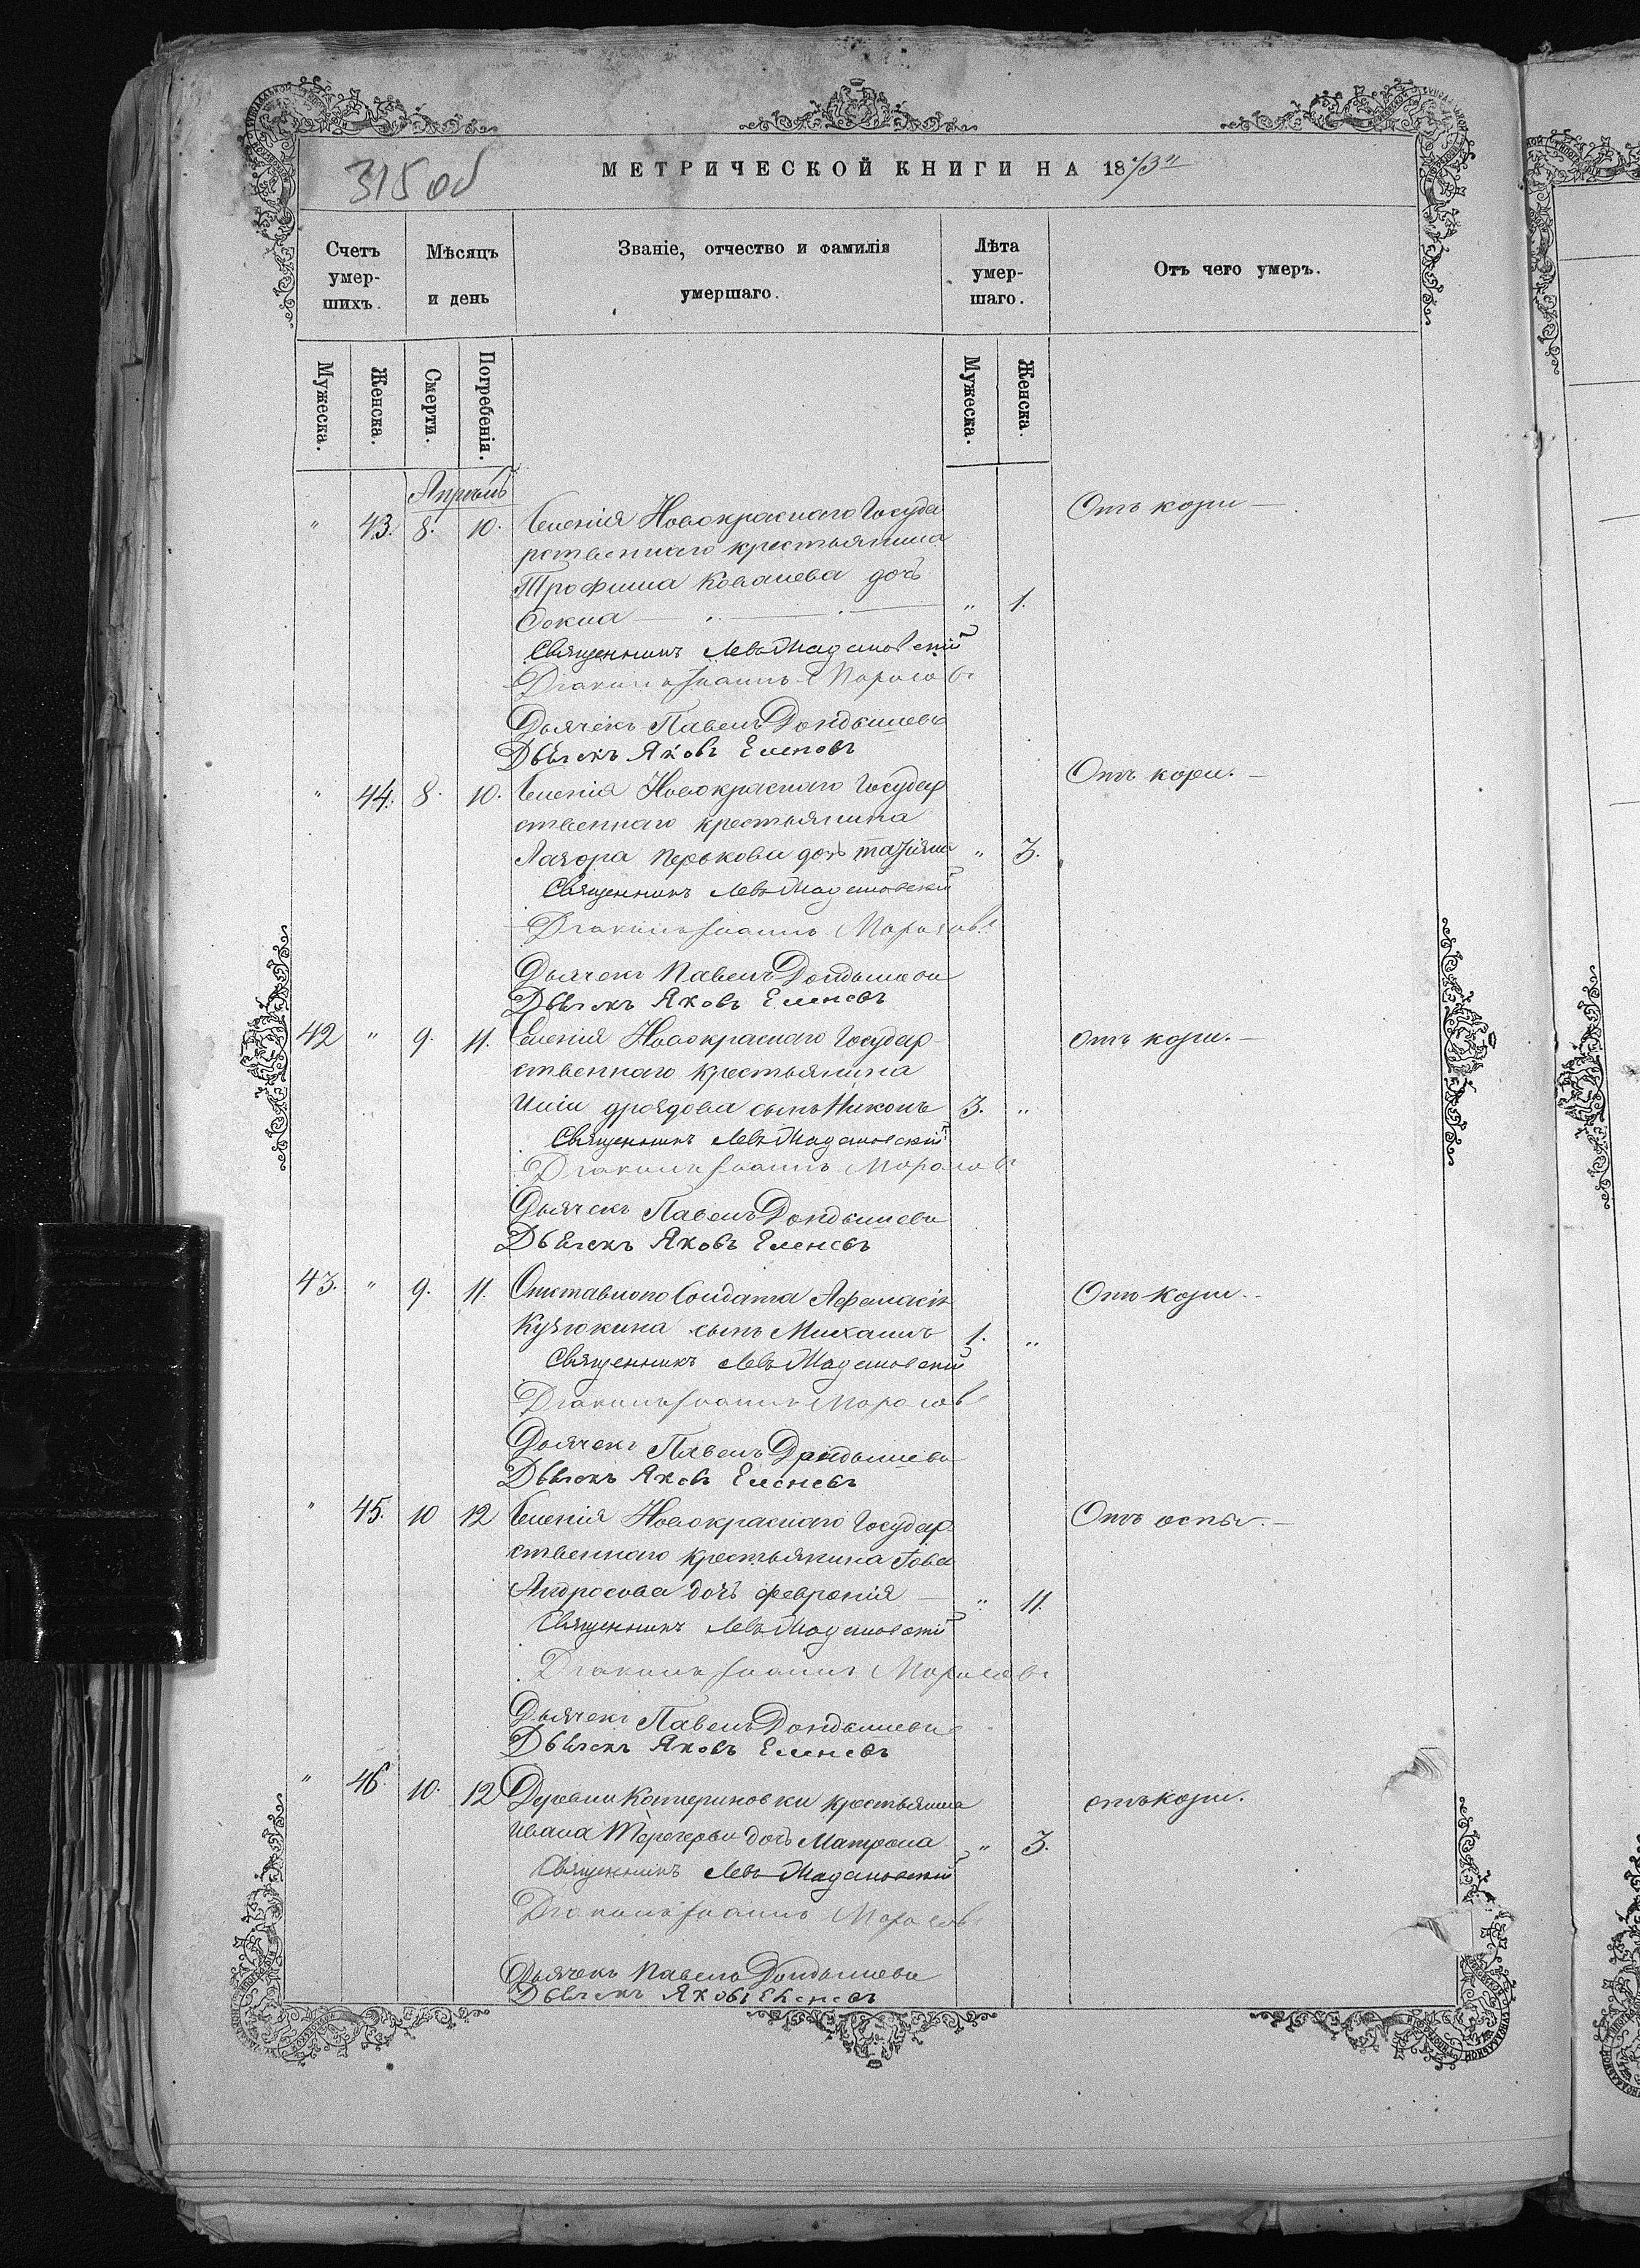 315 об
МЕТРИЧЕСКОЙ КНИГИ НА 1873
Счетъ умер-шихъ.
Мѣсяцъ и день
Званіе, отчество и фамилія умершаго.
Лѣта умер-шаго.
Отъ чего умеръ.
Мужеска.
Женска.
Смерти.
Погребенія.
Мужеска.
Женска.
Апрѣль
" 43. 8. 10. Селенія Новокраснаго Госуда Отъ кори —
рственнаго крестьянина
Трофима Ковалева дочь
" 1.
Священникъ Левъ
Діаконъ Іоаннъ Морозовъ
Дьячекъ Павелъ
Дьячекъ Яковъ Еленевъ
" 44. 8. 10. Селенія Новокраснаго Государ Отъ кори. —
ственнаго крестьянина
Лазора дочь " 3.
Священникъ Левъ
Діаконъ Іоаннъ Морозовъ
Дьячекъ Павелъ
Дьячекъ Яковъ Еленевъ
42 " 9. 11. Селенія Новокраснаго Государ- отъ кори. —
ственнаго крестьянина
дроздова сынъ Никонъ 3. "
Священникъ Левъ
Діаконъ Іоаннъ Морозовъ
Дьячекъ Павелъ
Дьячекъ Яковъ Еленевъ
43. " 9. 11. Отставнаго Солдата Афанасія Отъ кори.
Кузюкина сынъ Михаилъ 1. "
Священникъ Левъ
Діаконъ Іоаннъ Морозовъ
Дьячекъ Павелъ
Дьячекъ Яковъ Еленевъ
" 45. 10 12 Селенія Новокраснаго Государ Отъ оспы. —
ственнаго крестьянина
Андросова дочь февронія — " 11.
Священникъ Левъ
Діаконъ Іоаннъ Морозовъ
Дьячекъ Павелъ
Дьячекъ Яковъ Еленевъ
" 46. 10. 12 Деревни Катериновки крестьянина отъ кори.
Ивана дочь Матрона " 3.
Священникъ Левъ
Діаконъ Іоаннъ Морозовъ
Дьячекъ Павелъ
Дьячекъ Яковъ Еленевъ